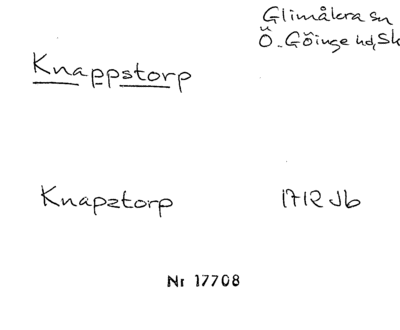 Glimåkra sn
Ö. Göinge hd, Sk
Knappstorp
Knapztorp 1712 Jb
Nr 17708